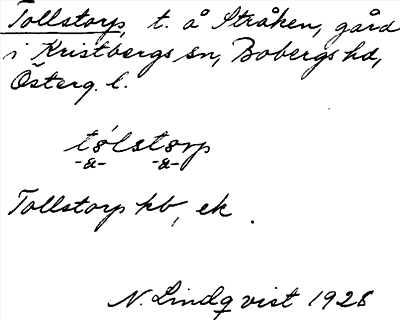 Tollstorp, t. å Stråken, gård
i Kristbergs sn, Bobergs hd,
Österg. l.
tólstorp
-a- -a-
Tollstorp kb, ek.
N. Lindqvist 1928